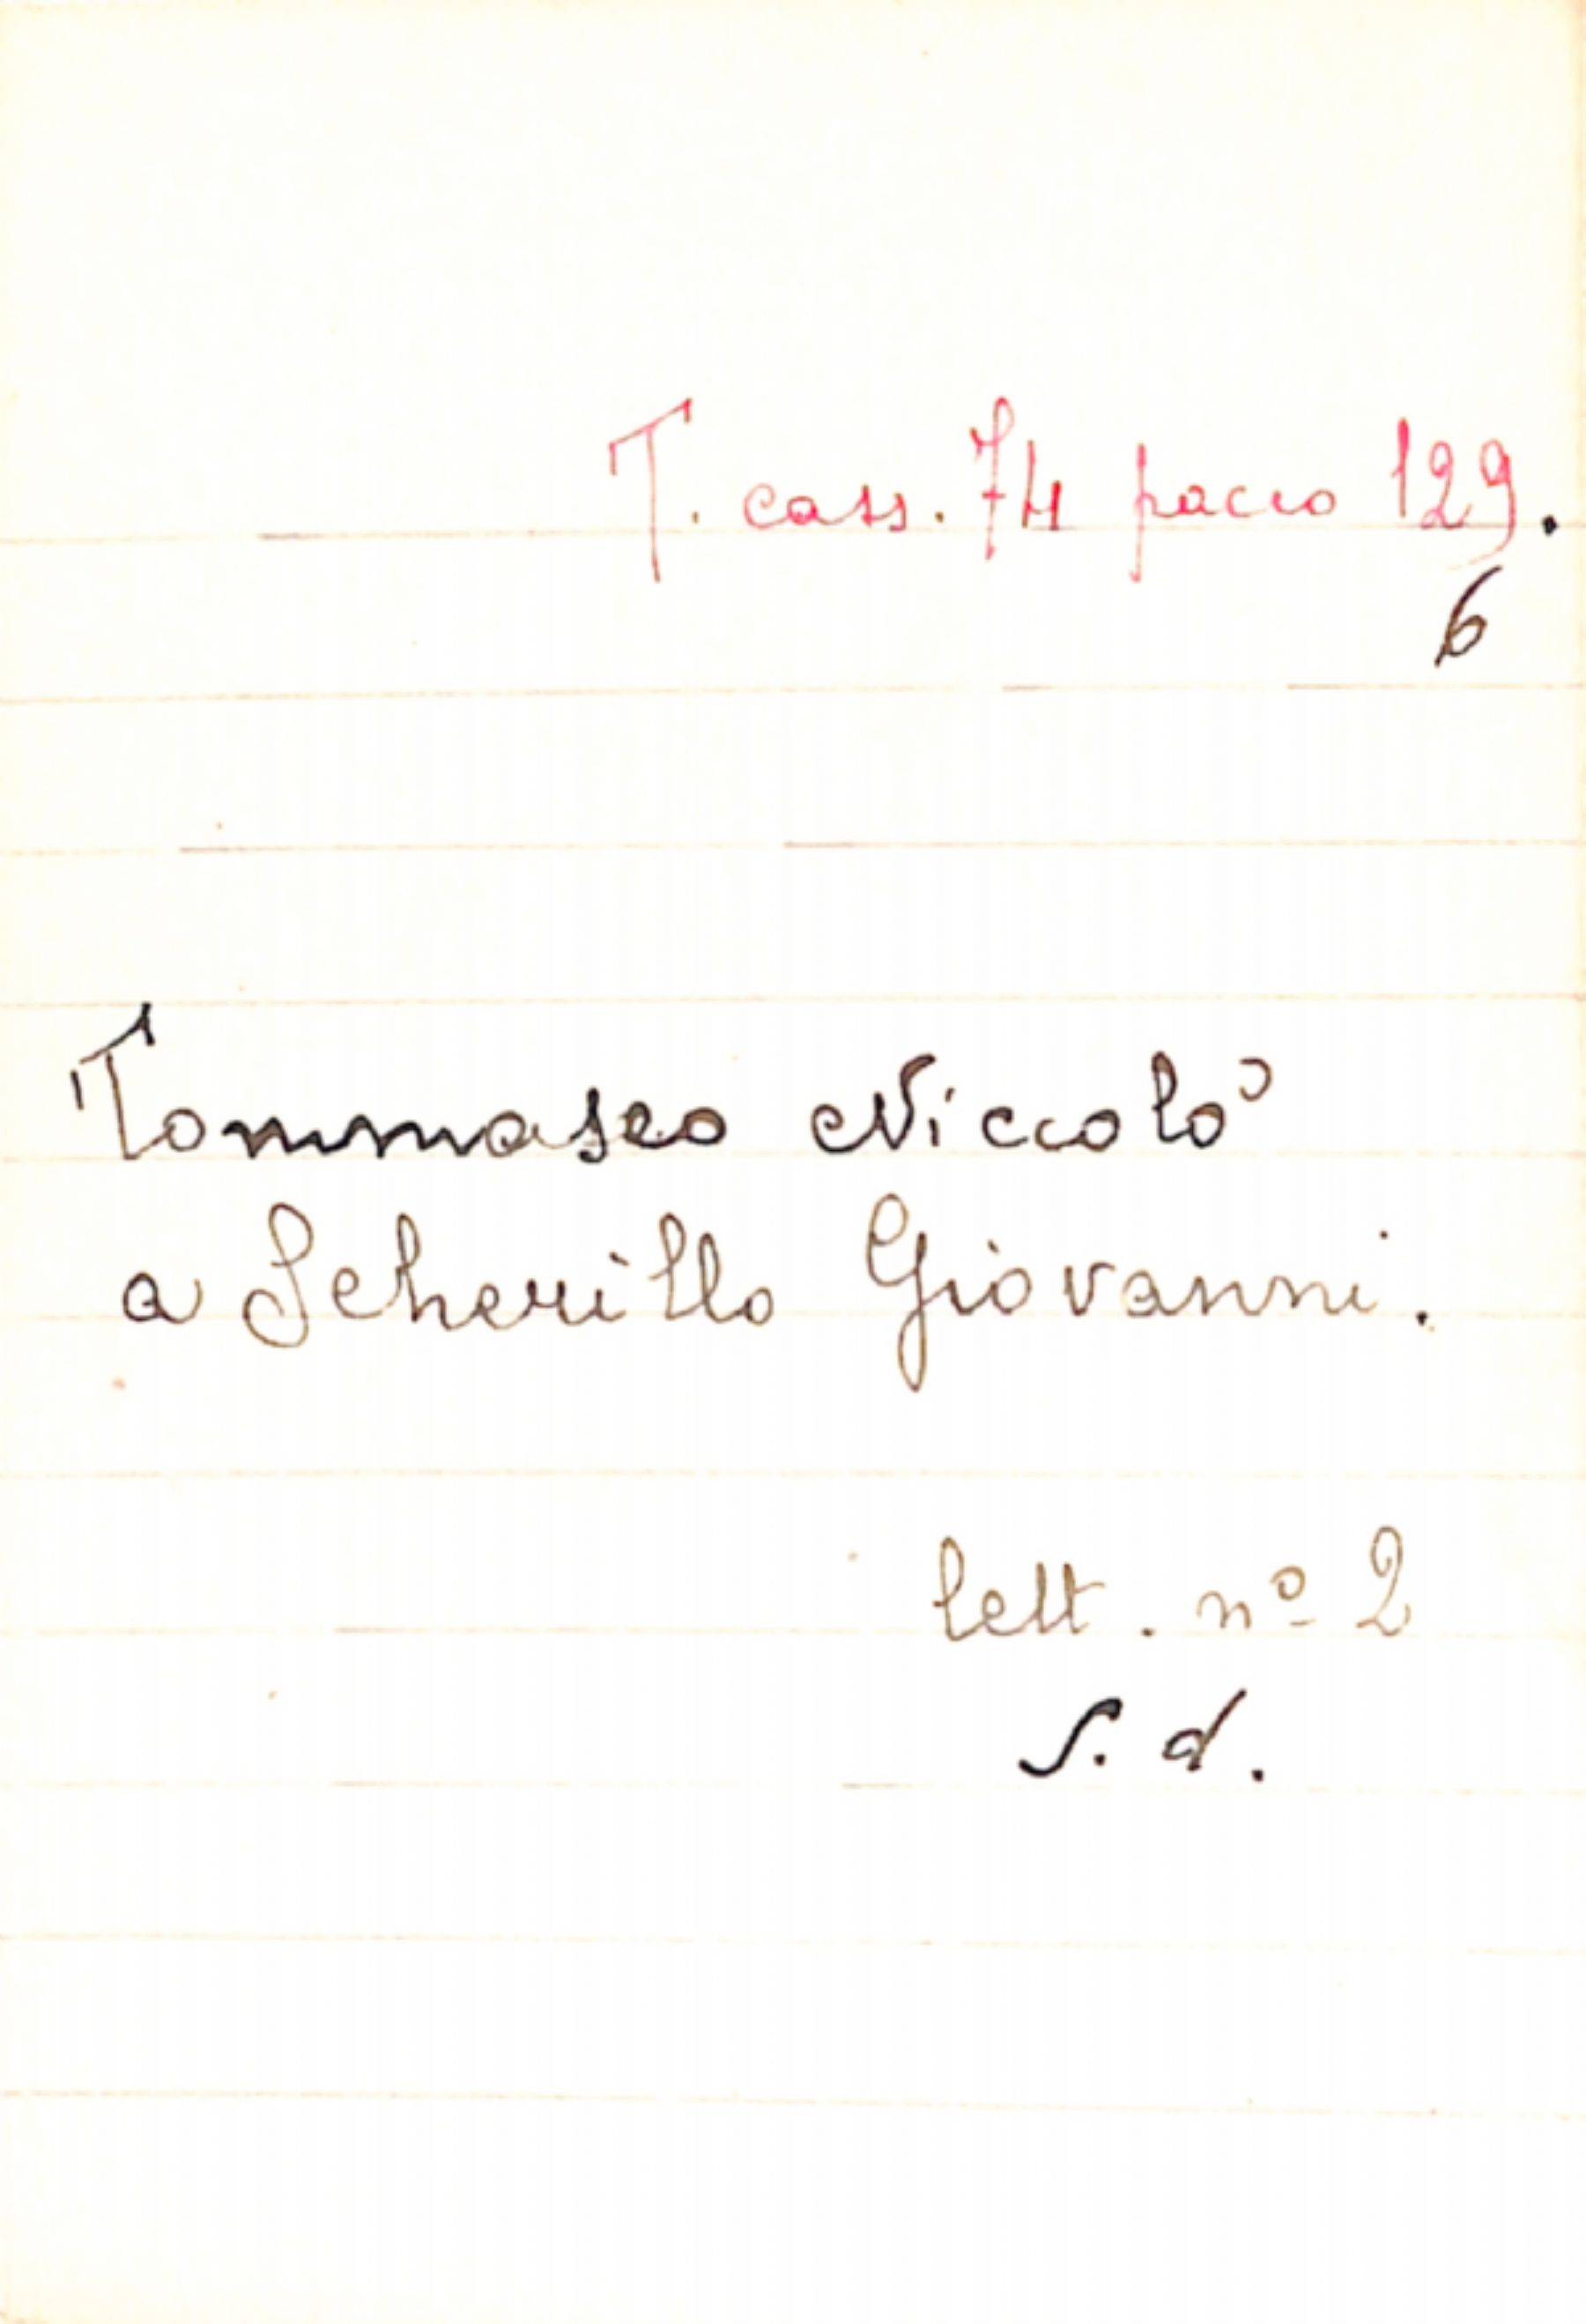 T. cass. 74 pacco 129.
6
Tommaseo Niccolò
a Scherillo Giovanni.
lett. nº 2
S. d.